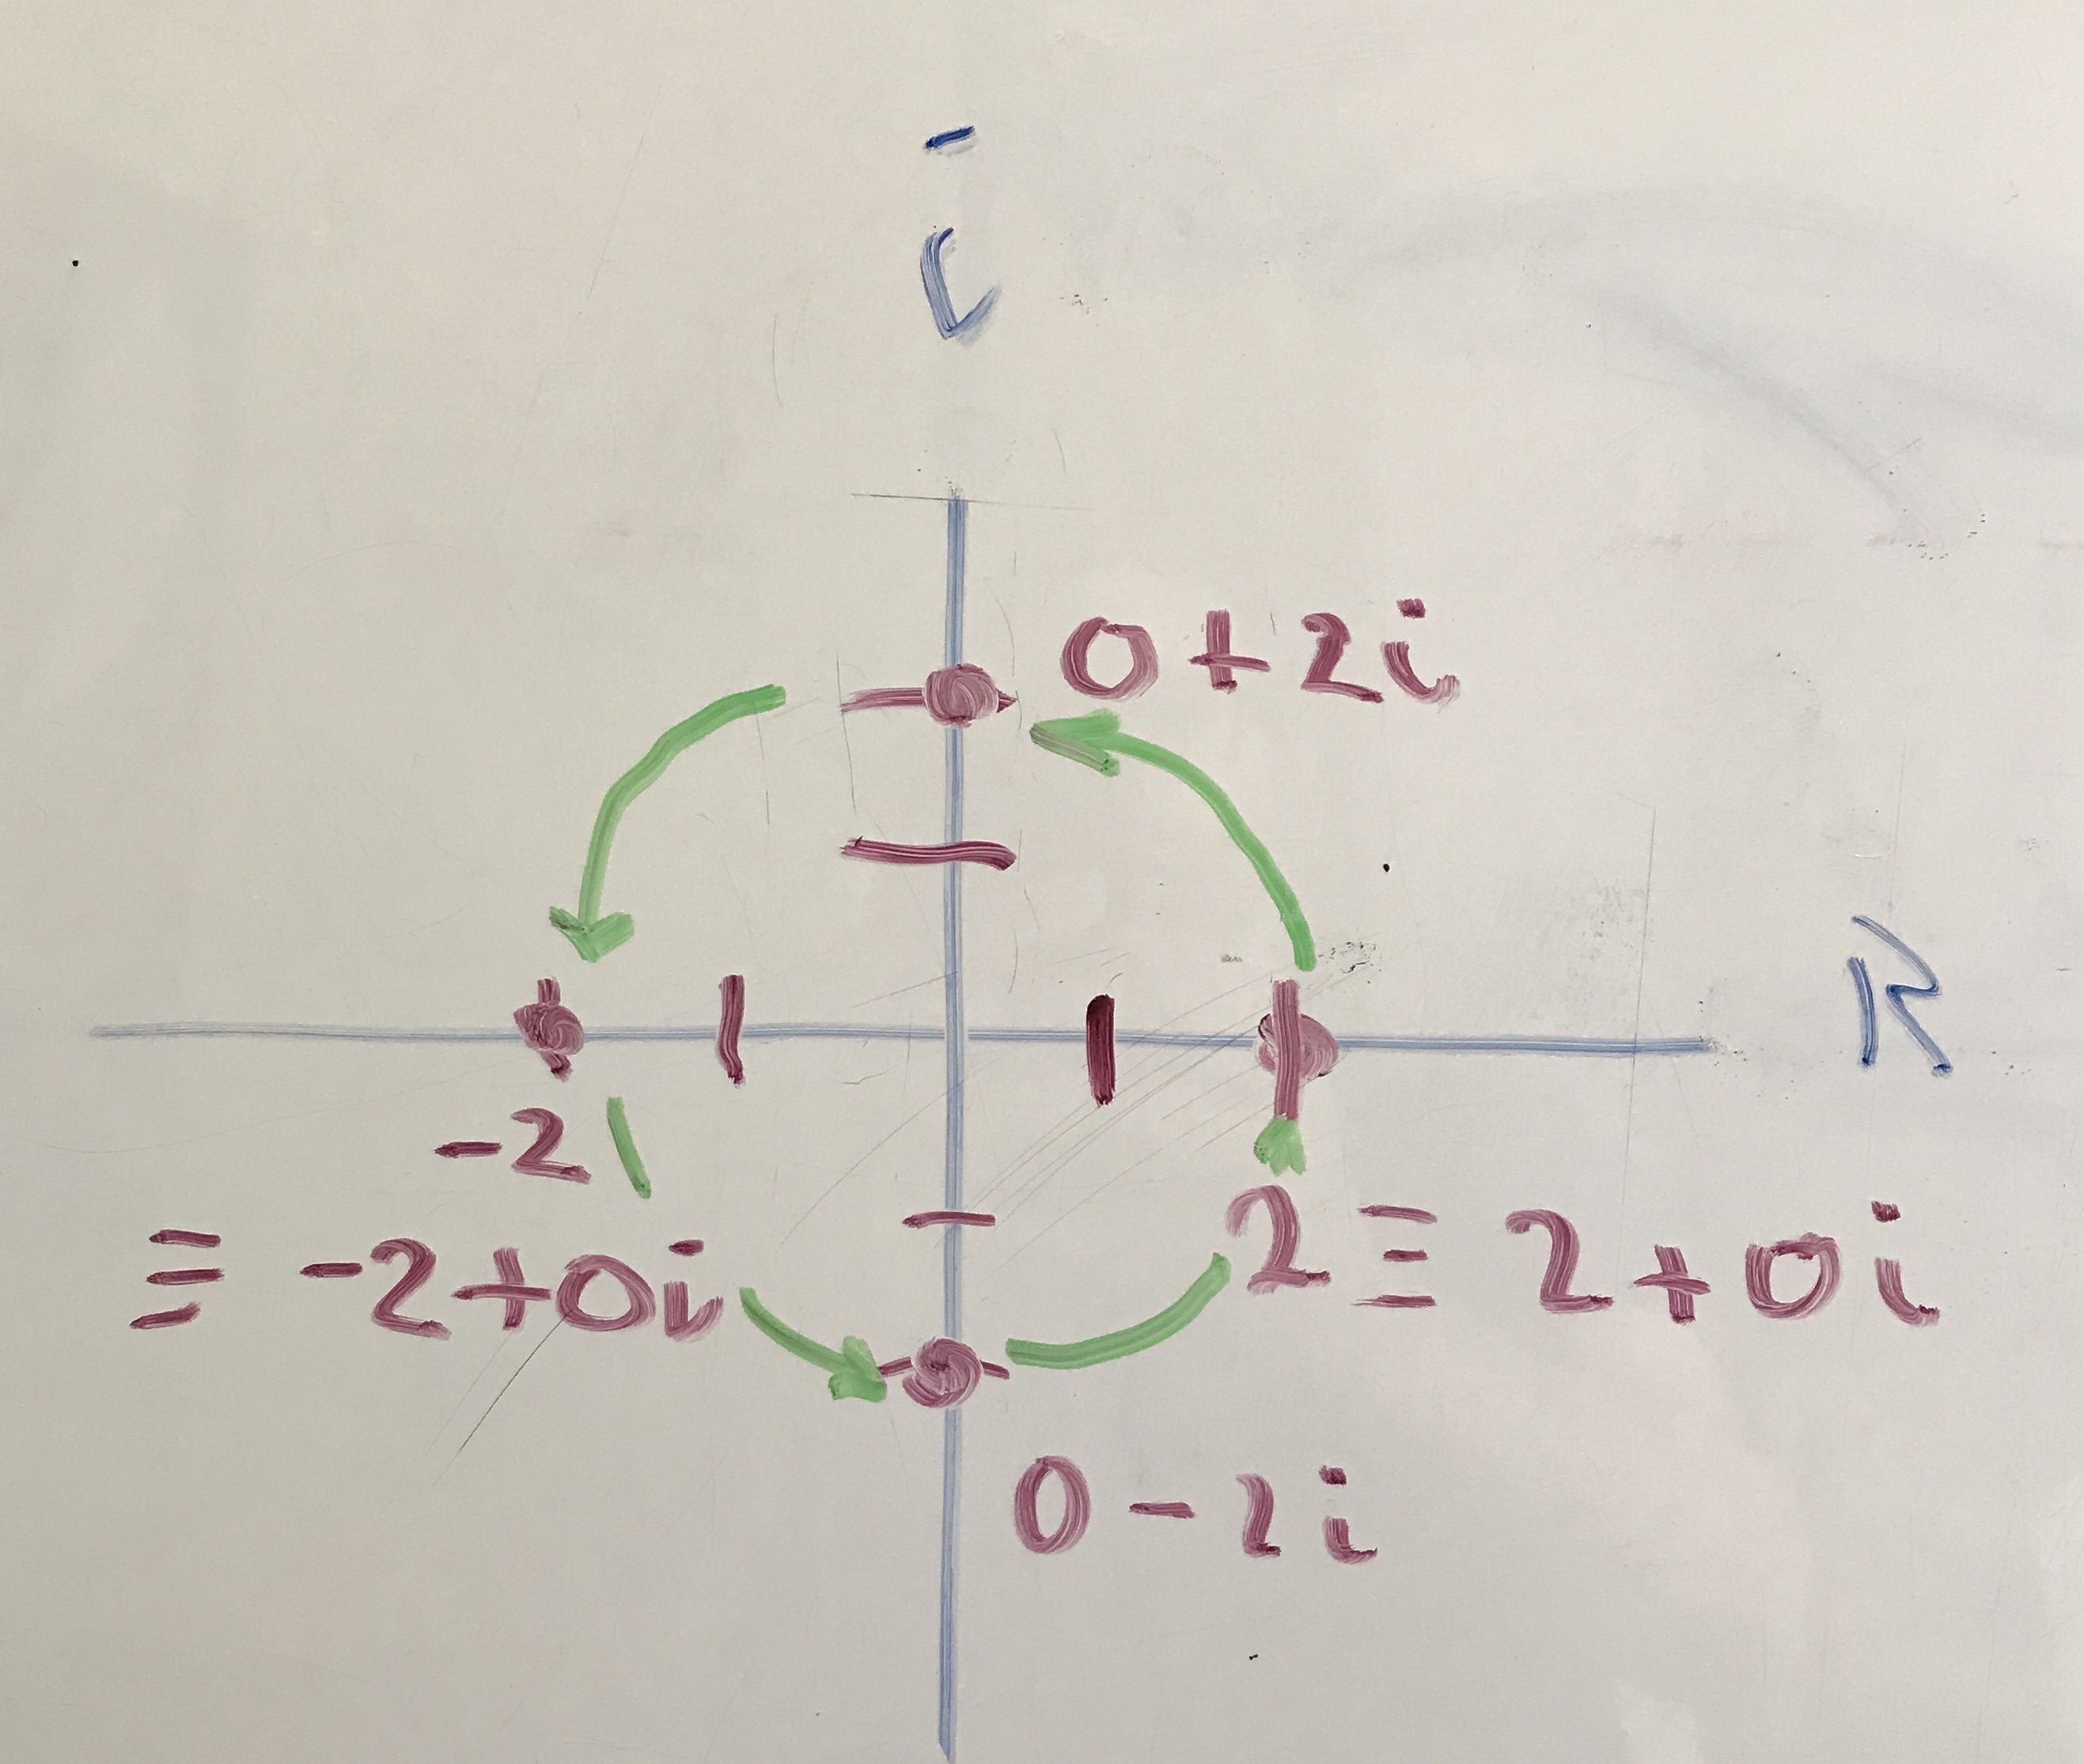 i
0+2i
R
-2
≡ -2+0i
2 ≡ 2+0i
0-2i